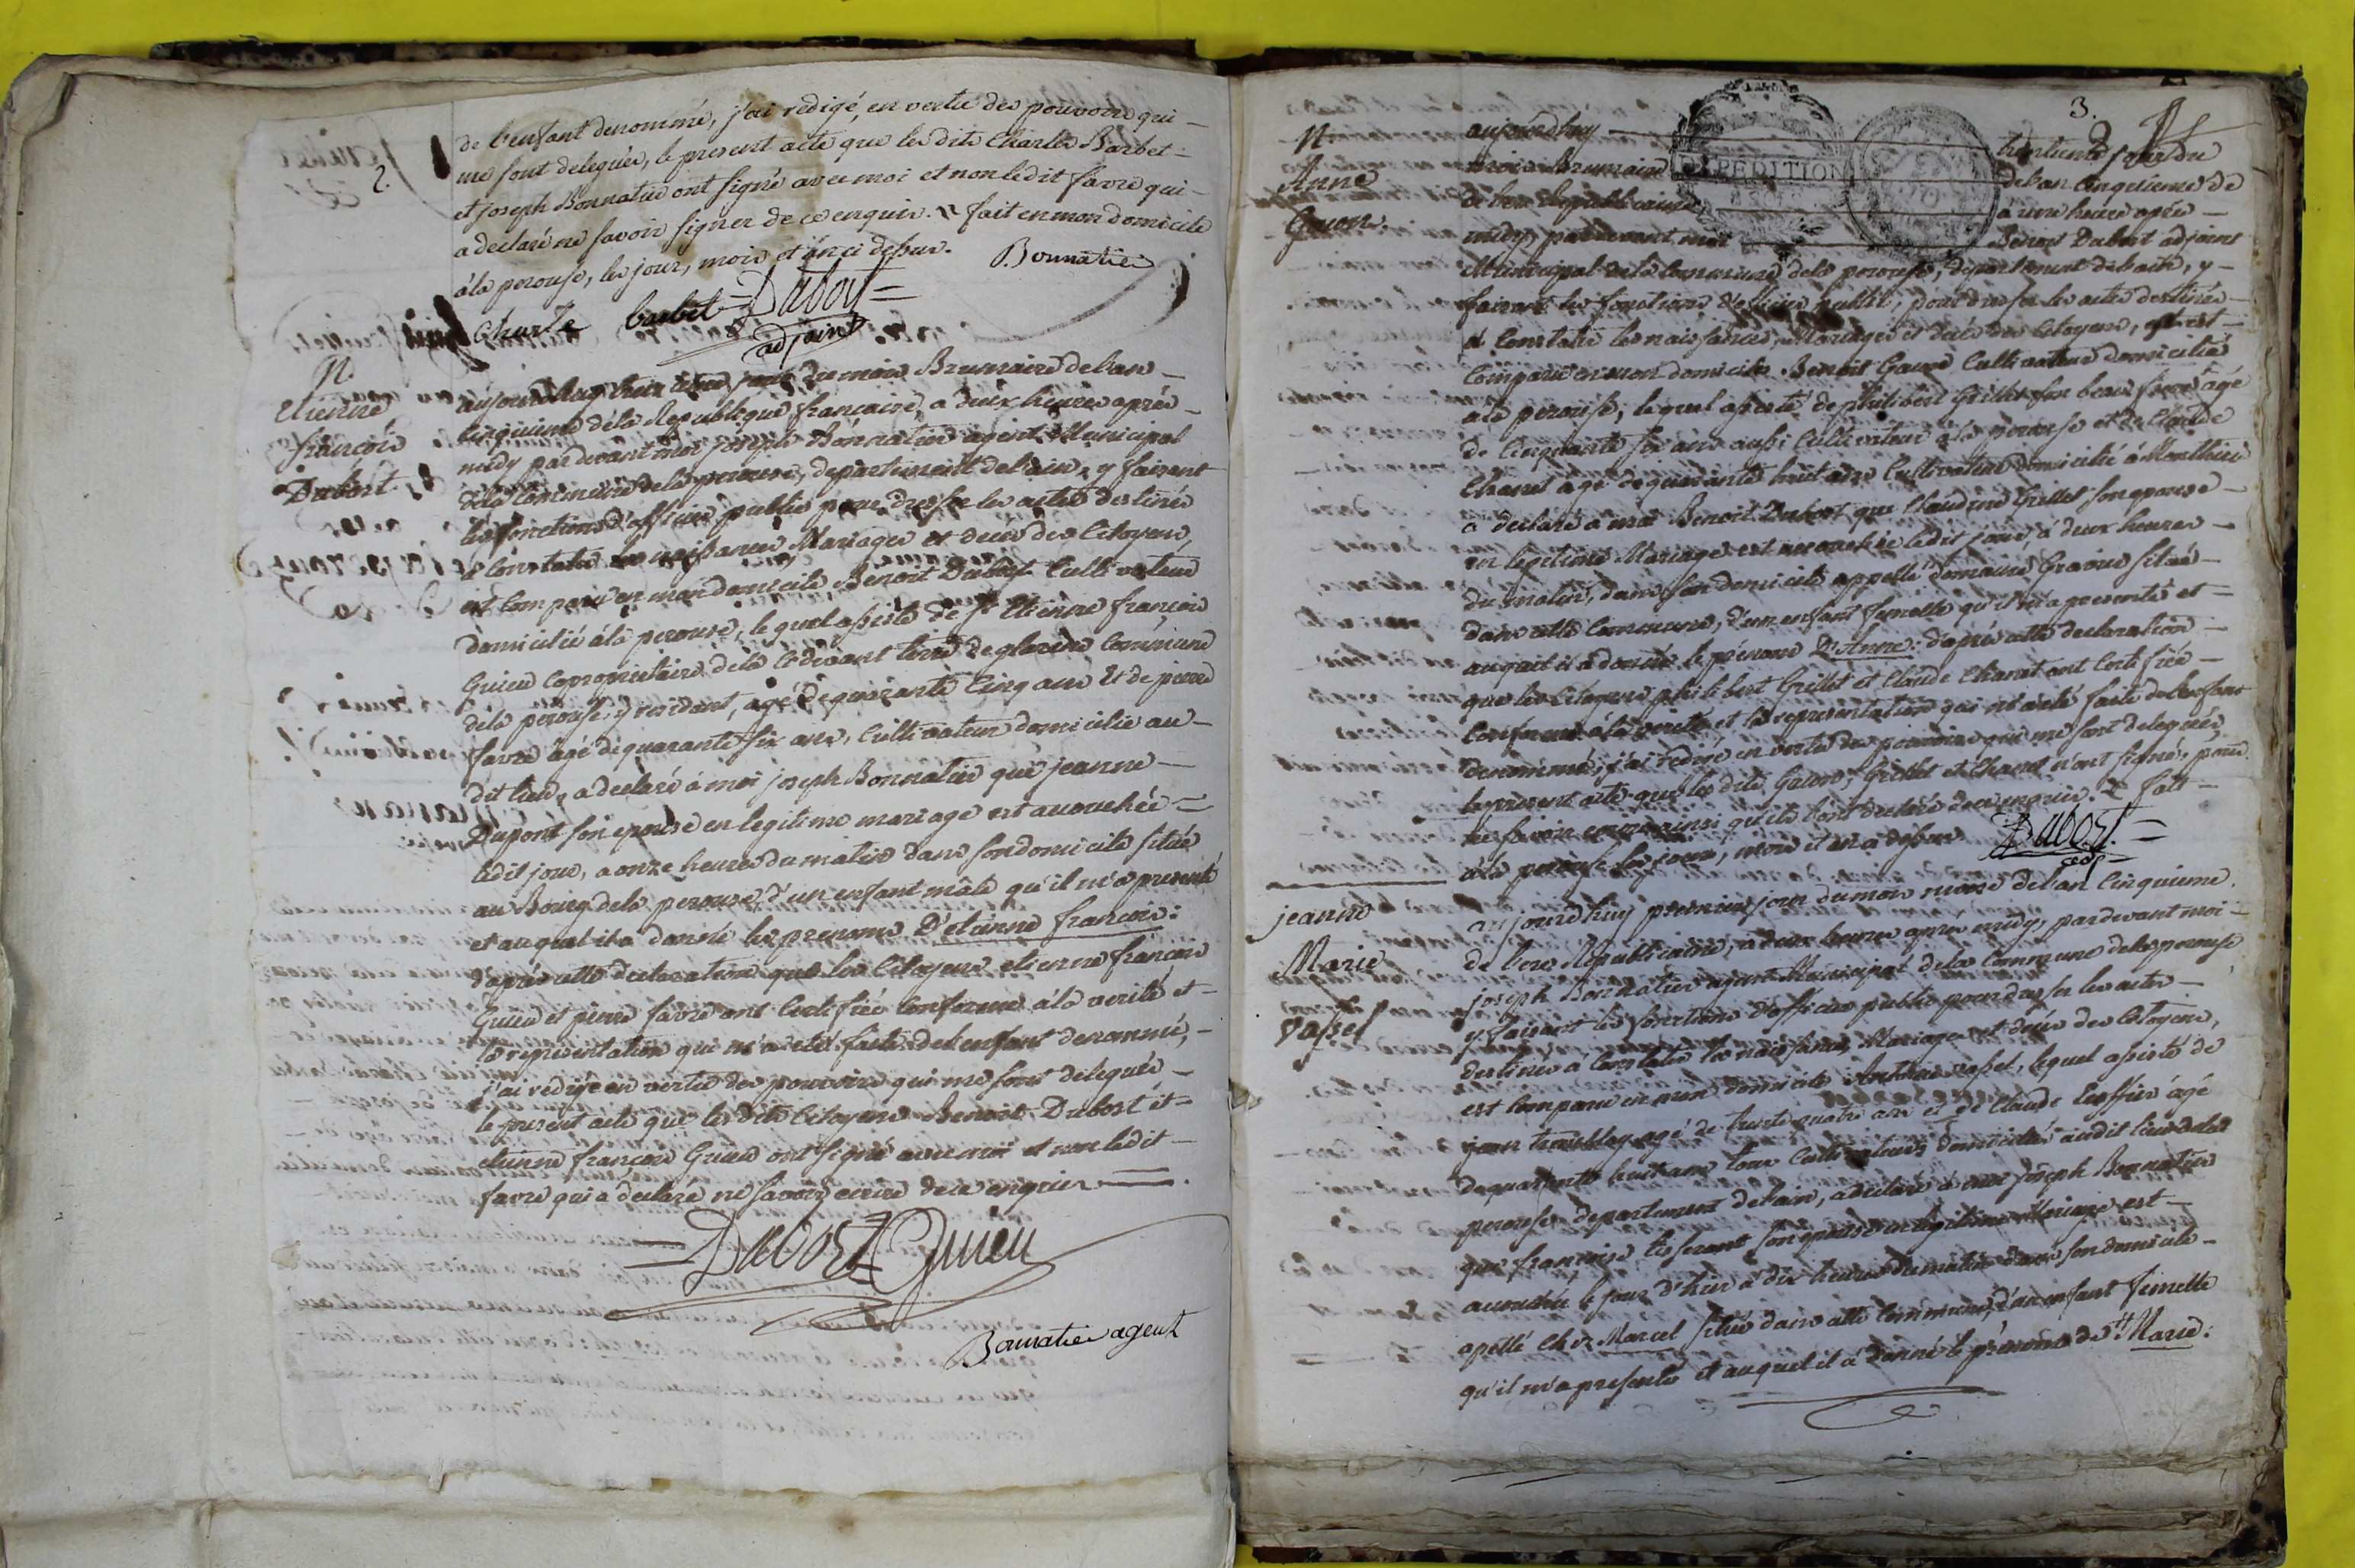 2.
de l'enfant denommé, j'ai redigé, en vertu des pouvoirs qui
me sont delegués, le present acte que les dits Charles Barbet
et joseph Bonnatier ont signé avec moi et non ledit favre qui
a declaré ne savoir signer de ce enquis. fait en mon domicile
à la perouse, les jour, mois et an ci dessus. Bonnatier
Charle barbet Dubost
adjoint
N.
Etienne
françois
Dubost.
aujourdhuy jour du mois Brumaire de l'an
cinquieme de la Republique française, a deux heures après
midy pardevant moi joseph Bonnatier agent Municipal
de la Commune de la perouse, departement de l'ain, y faisant
les fonctions d'officier public pour dresser les actes destinés
à Constater les naissances Mariages et décès des Citoyens,
est comparu en mon domicile, Benoit Dubost Cultivateur
domicilié à la perouse, lequel assisté de Etienne françois
Guieu copropriétaire de la cidevant terre de glareins Commune
de la perouse, y residant, agé de quarante Cinq ans et de pierre
favre agé de quarante six ans, Cultivateur domicilié au
dit lieu, a declaré à moi joseph Bonnatier que jeanne
Dupont son epouse en legitime mariage est accouchée
ledit jour, a onze heures du matin dans son domicile situé
au Bourg de la perouse, d'un enfant mâle qu'il m'a presenté
et auquel il a donné les prenoms D'etienne françois:
d'après cette declaration que les Citoyens etienne françois
Guieu et pierre favre ont Certifiée Conforme à la verité et
la représentation qui m'a eté faite de l'enfant denommé,
j'ai redigé en vertu des pouvoirs qui me sont delegués
le present acte que les dits Citoyens Benoit Dubost et
etienne françois Guieu ont signé avec moi et non ledit
favre qui a declaré ne savoir ecrire de ce enquis
Dubost Guieu
Bonnatier agent
3.
EXPEDITION
N.
Anne
aujourdhuy trentieme jour du
mois Brumaire de l'an Cinquieme de
l'ere Republicaine, à une heure après
midy, pardevant moi Benoit Dubost adjoint
Municipal de la Commune de la perouse, departement de l'ain, y
faisant les fonctions d'officier public, pour dresser les actes destinés
à Constater les naissances, Mariages et décès des Citoyens, est
Comparu en mon domicile Benoit Cultivateur domicilié
a la perouse, lequel assisté de philibert Grillet son beau frere agé
de Cinquante six ans aussi Cultivateur à la perouse et de Claude
Chanet agé de quarante huit ans Cultivateur domicilié à
a declaré a moi Benoit Dubost que Claudine Grillet son epouse
en legitime Mariage est accouchée ledit jour, à deux heures
du matin, dans son domicile appellé domaine situé
dans cette Commune, d'un enfant femelle qu'il m'a presenté et
auquel il a donné le prenom D'Anne: d'après cette declaration
que les Citoyens philibert Grillet et Claude Chanet ont Certifiée
Conforme à la verité et la representation qui m'a eté faite de l'enfant
denommé, j'ai redigé en vertu des pouvoirs qui me sont delegués
le present acte que les dits Grillet et Chanet n'ont signé, pour
ne savoir ainsi qu'ils l'ont declaré de ce enquis. fait
à la perouse les jour, mois et an ci dessus Dubost
adj
jeanne
Marie
Vassel
aujourdhuy premier jour du mois de l'an Cinquieme
de l'ere Republicaine, a deux heures après midy, pardevant moi
joseph Bonnatier agent Municipal de la Commune de la perouse
y faisant les fonctions d'officier public pour dresser les actes
destinés à Constater les naissances, Mariages et décès des Citoyens,
est Comparu en mon domicile Antoine Vassel, lequel assisté de
jean tremblay agé de trente quatre ans et de Claude agé
de quarante huit ans tous Cultivateurs domiciliés audit lieu de la
perouse departement de l'ain, a declaré à moi joseph Bonnatier
que françoise tisserant son epouse en legitime Mariage est
accouchée le jour d'hier à dix heures du matin dans son domicile
apellé chez Marcel situé dans cette Commune, d'un enfant femelle
qu'il m'a presenté et auquel il a donné le prenoms de Marie: